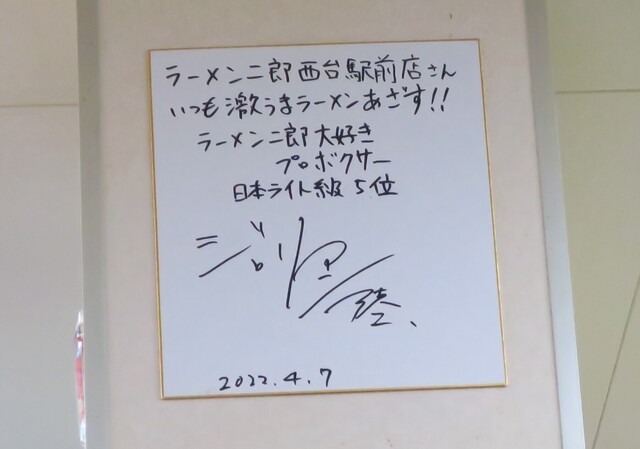 ラーメン二郎西台駅前店さん
いつも激うまラーメンあざす!!
ラーメン二郎大好き
プロボクサー
日本ライト級5位
2022.4.7